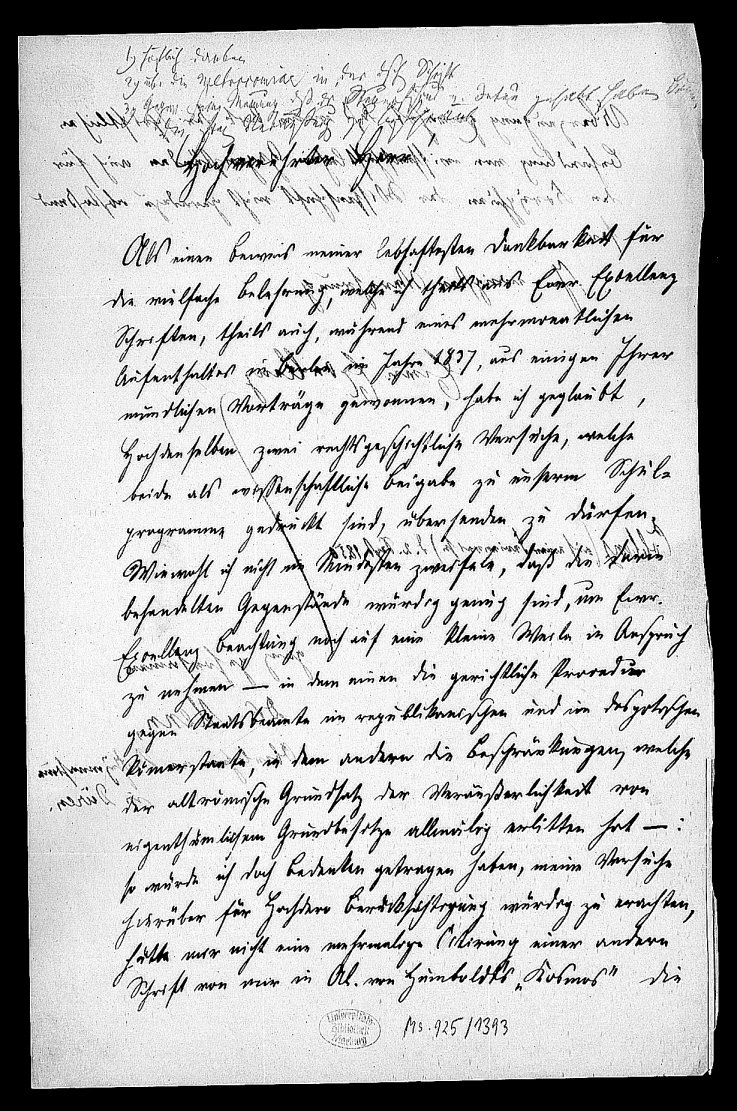 1, höflich danken
2, üb. die in der Schrift
3, Gegen seine Meinung daß die gehabt haben
Hochverehrter Herr!
Als einen Beweis meiner lebhaftesten Dankbarkeit für
die vielfache Belehrung, welche ich theils aus Ewr. Excellenz
Schriften, theils auch, während eines mehrmonatlichen
Aufenthaltes in Berlin im Jahre 1837, aus einigen Ihrer
mündlichen Vorträge gewonnen, habe ich geglaubt,
Hochdenselben zwei rechtsgeschichtliche Versuche, welche
beide als wissenschaftliche Beigabe zu unserm Schul-
programme gedruckt sind, übersenden zu dürfen.
Wiewohl ich nicht im Mindesten zweifele, daß die darin
behandelten Gegenstände würdig genug sind, um Ewr.
Excellenz Beachtung noch auf eine kleine Weile in Anspruch
zu nehmen — in dem einen die gerichtliche Procedur
gegen Staatsbeamte im republikanischen und im despotischen
Römerstaate, in dem andern die Beschränkungen, welche
der altrömische Grundsatz der Veräußerlichkeit von
eigenthümlichem Grundbesitze allmälig erlitten hat —:
so würde ich doch Bedenken getragen haben, meine Versuche
hierüber für Hochdero Berücksichtigung würdig zu erachten,
hätte mir nicht eine mehrmalige Citirung einer andern
Schrift von mir in Al. von Humboldt's „Kosmos" die
Universitäts-
Bibliothek
Marburg
Ms. 925/1393